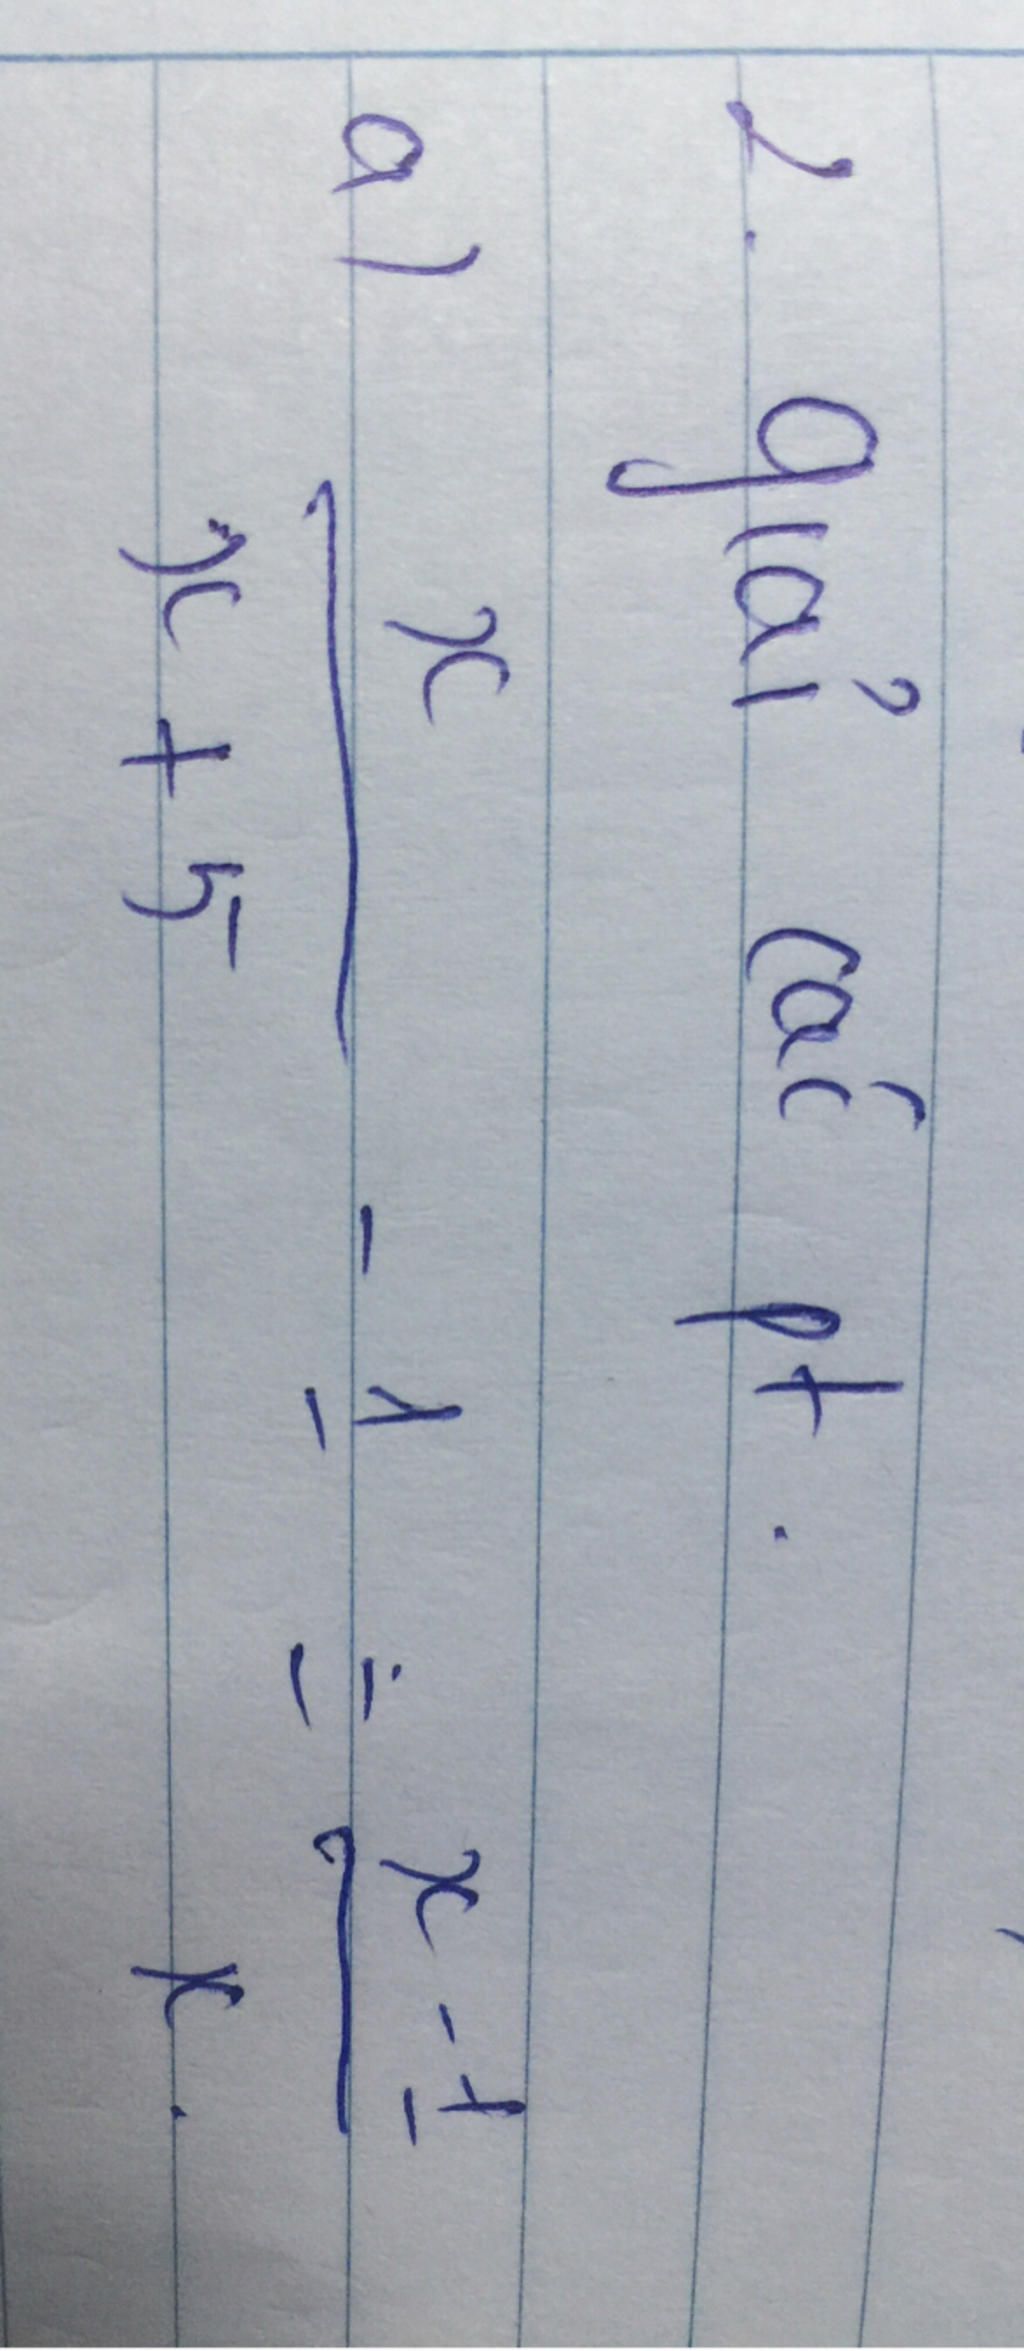 2. giải các pt.
a) x/(x + 5) - 1 = (x - 1)/x.